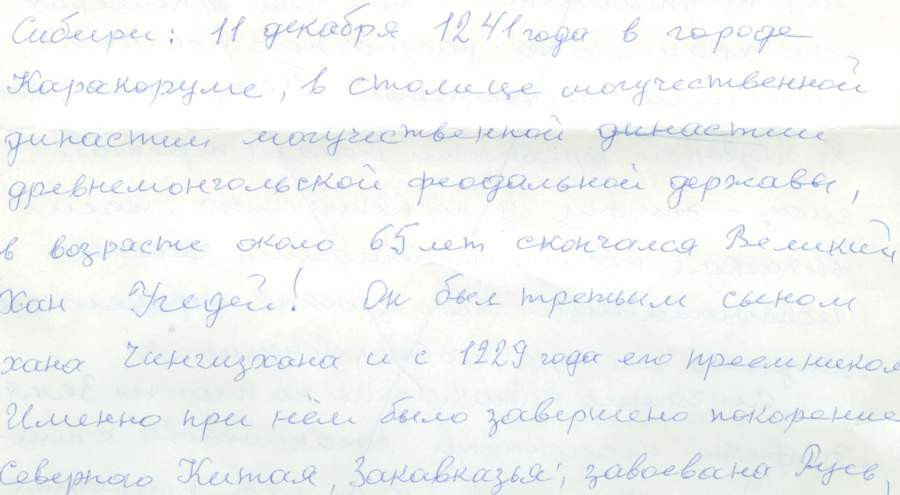 Сибири: 11 декабря 1241 года в городе
Каракоруме, в столице могучественной
династии могучественной династии
древнемонгольской феодальной державы,
в возрасте около 65 лет скончался Великий
Хан Угедей! Он был третьим сыном
хана Чингизхана и с 1229 года его преемником
Именно при нём было завершено покорение
Северного Китая, Закавказья; завоевана Русь,